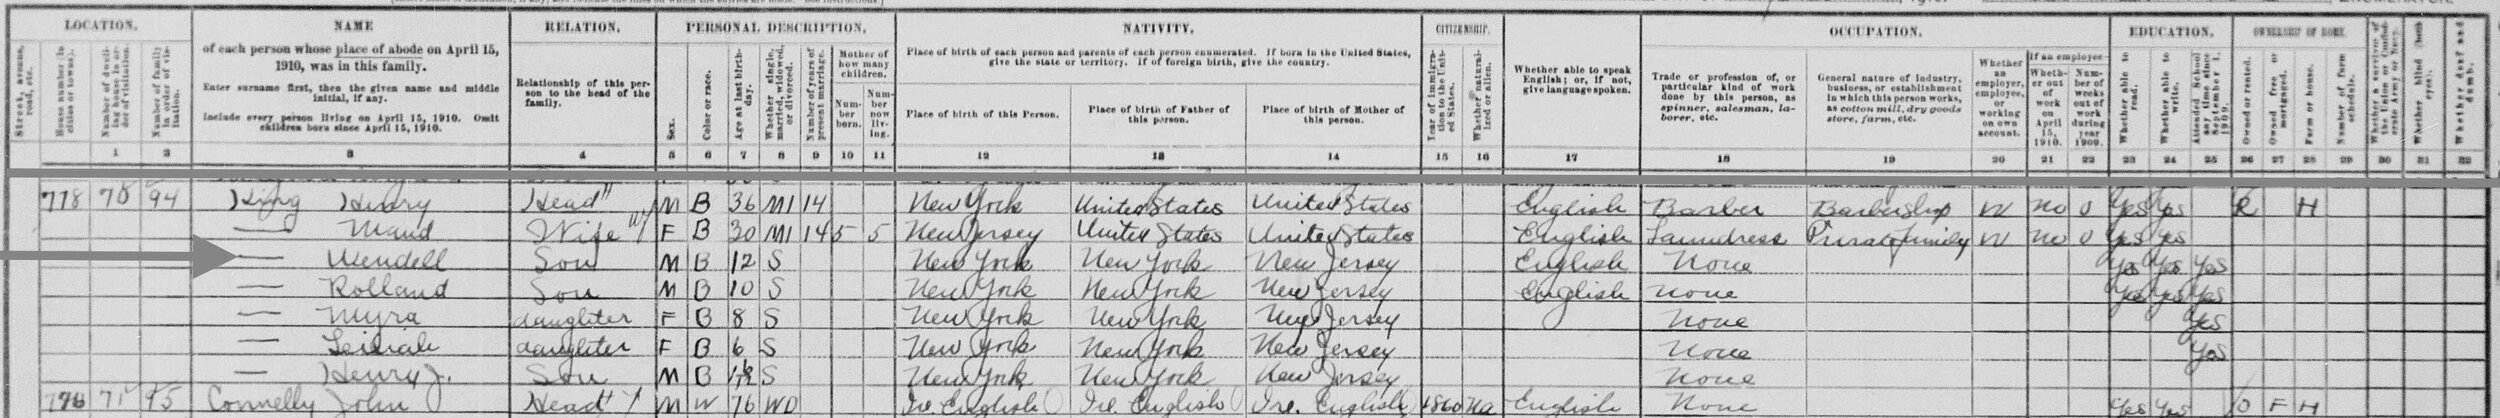 LOCATION.
Street, avenue, road, etc.
House number (in cities or towns).
Number of dwelling house in order of visitation.
Number of family in order of visitation.
NAME
of each person whose place of abode on April 15, 1910, was in this family.
Enter surname first, then the given name and middle initial, if any.
Include every person living on April 15, 1910. Omit children born since April 15, 1910.
RELATION.
Relationship of this person to the head of the family.
PERSONAL DESCRIPTION.
Sex.
Color or race.
Age at last birthday.
Whether single, married, widowed, or divorced.
Number of years of present marriage.
Mother of how many children.
Number born.
Number now living.
NATIVITY.
Place of birth of each person and parents of each person enumerated. If born in the United States, give the state or territory. If of foreign birth, give the country.
Place of birth of this Person.
Place of birth of Father of this person.
Place of birth of Mother of this person.
CITIZENSHIP.
Year of immigration to the United States.
Whether naturalized or alien.
Whether able to speak English; or, if not, give language spoken.
OCCUPATION.
Trade or profession of, or particular kind of work done by this person, as spinner, salesman, laborer, etc.
General nature of industry, business, or establishment in which this person works, as cotton mill, dry goods store, farm, etc.
Whether an employer, employee, or working on own account.
If an employee—
Whether out of work on April 15, 1910.
Number of weeks out of work during year 1909.
EDUCATION.
Whether able to read.
Whether able to write.
Attended School any time since September 1, 1909.
OWNERSHIP OF HOME.
Owned or rented.
Owned free or mortgaged.
Farm or house.
Number of farm schedule.
Whether a survivor of the Union or Confederate Army or Navy.
Whether blind (both eyes).
Whether deaf and dumb.
1 2 3 4 5 6 7 8 9 10 11 12 13 14 15 16 17 18 19 20 21 22 23 24 25 26 27 28 29 30 31 32
778 70 94 King Henry Head M B 36 M1 14 New York United States United States English Barber Barbershop W No 0 Yes Yes R H
— Maud Wife F B 30 M1 14 5 5 New Jersey United States United States English Laundress Private family W No 0 Yes Yes
— Wendell Son M B 12 S New York New York New Jersey English None Yes Yes Yes
— Rolland Son M B 10 S New York New York New Jersey English None Yes Yes Yes
— Myra daughter F B 8 S New York New York New Jersey None Yes
— daughter F B 6 S New York New York New Jersey None Yes
— Henry J. Son M B S New York New York New Jersey None
776 71 95 Connelly John Head M W 76 WD Ire. English Ire. English Ire. English 1860 Na English None Yes Yes O F H